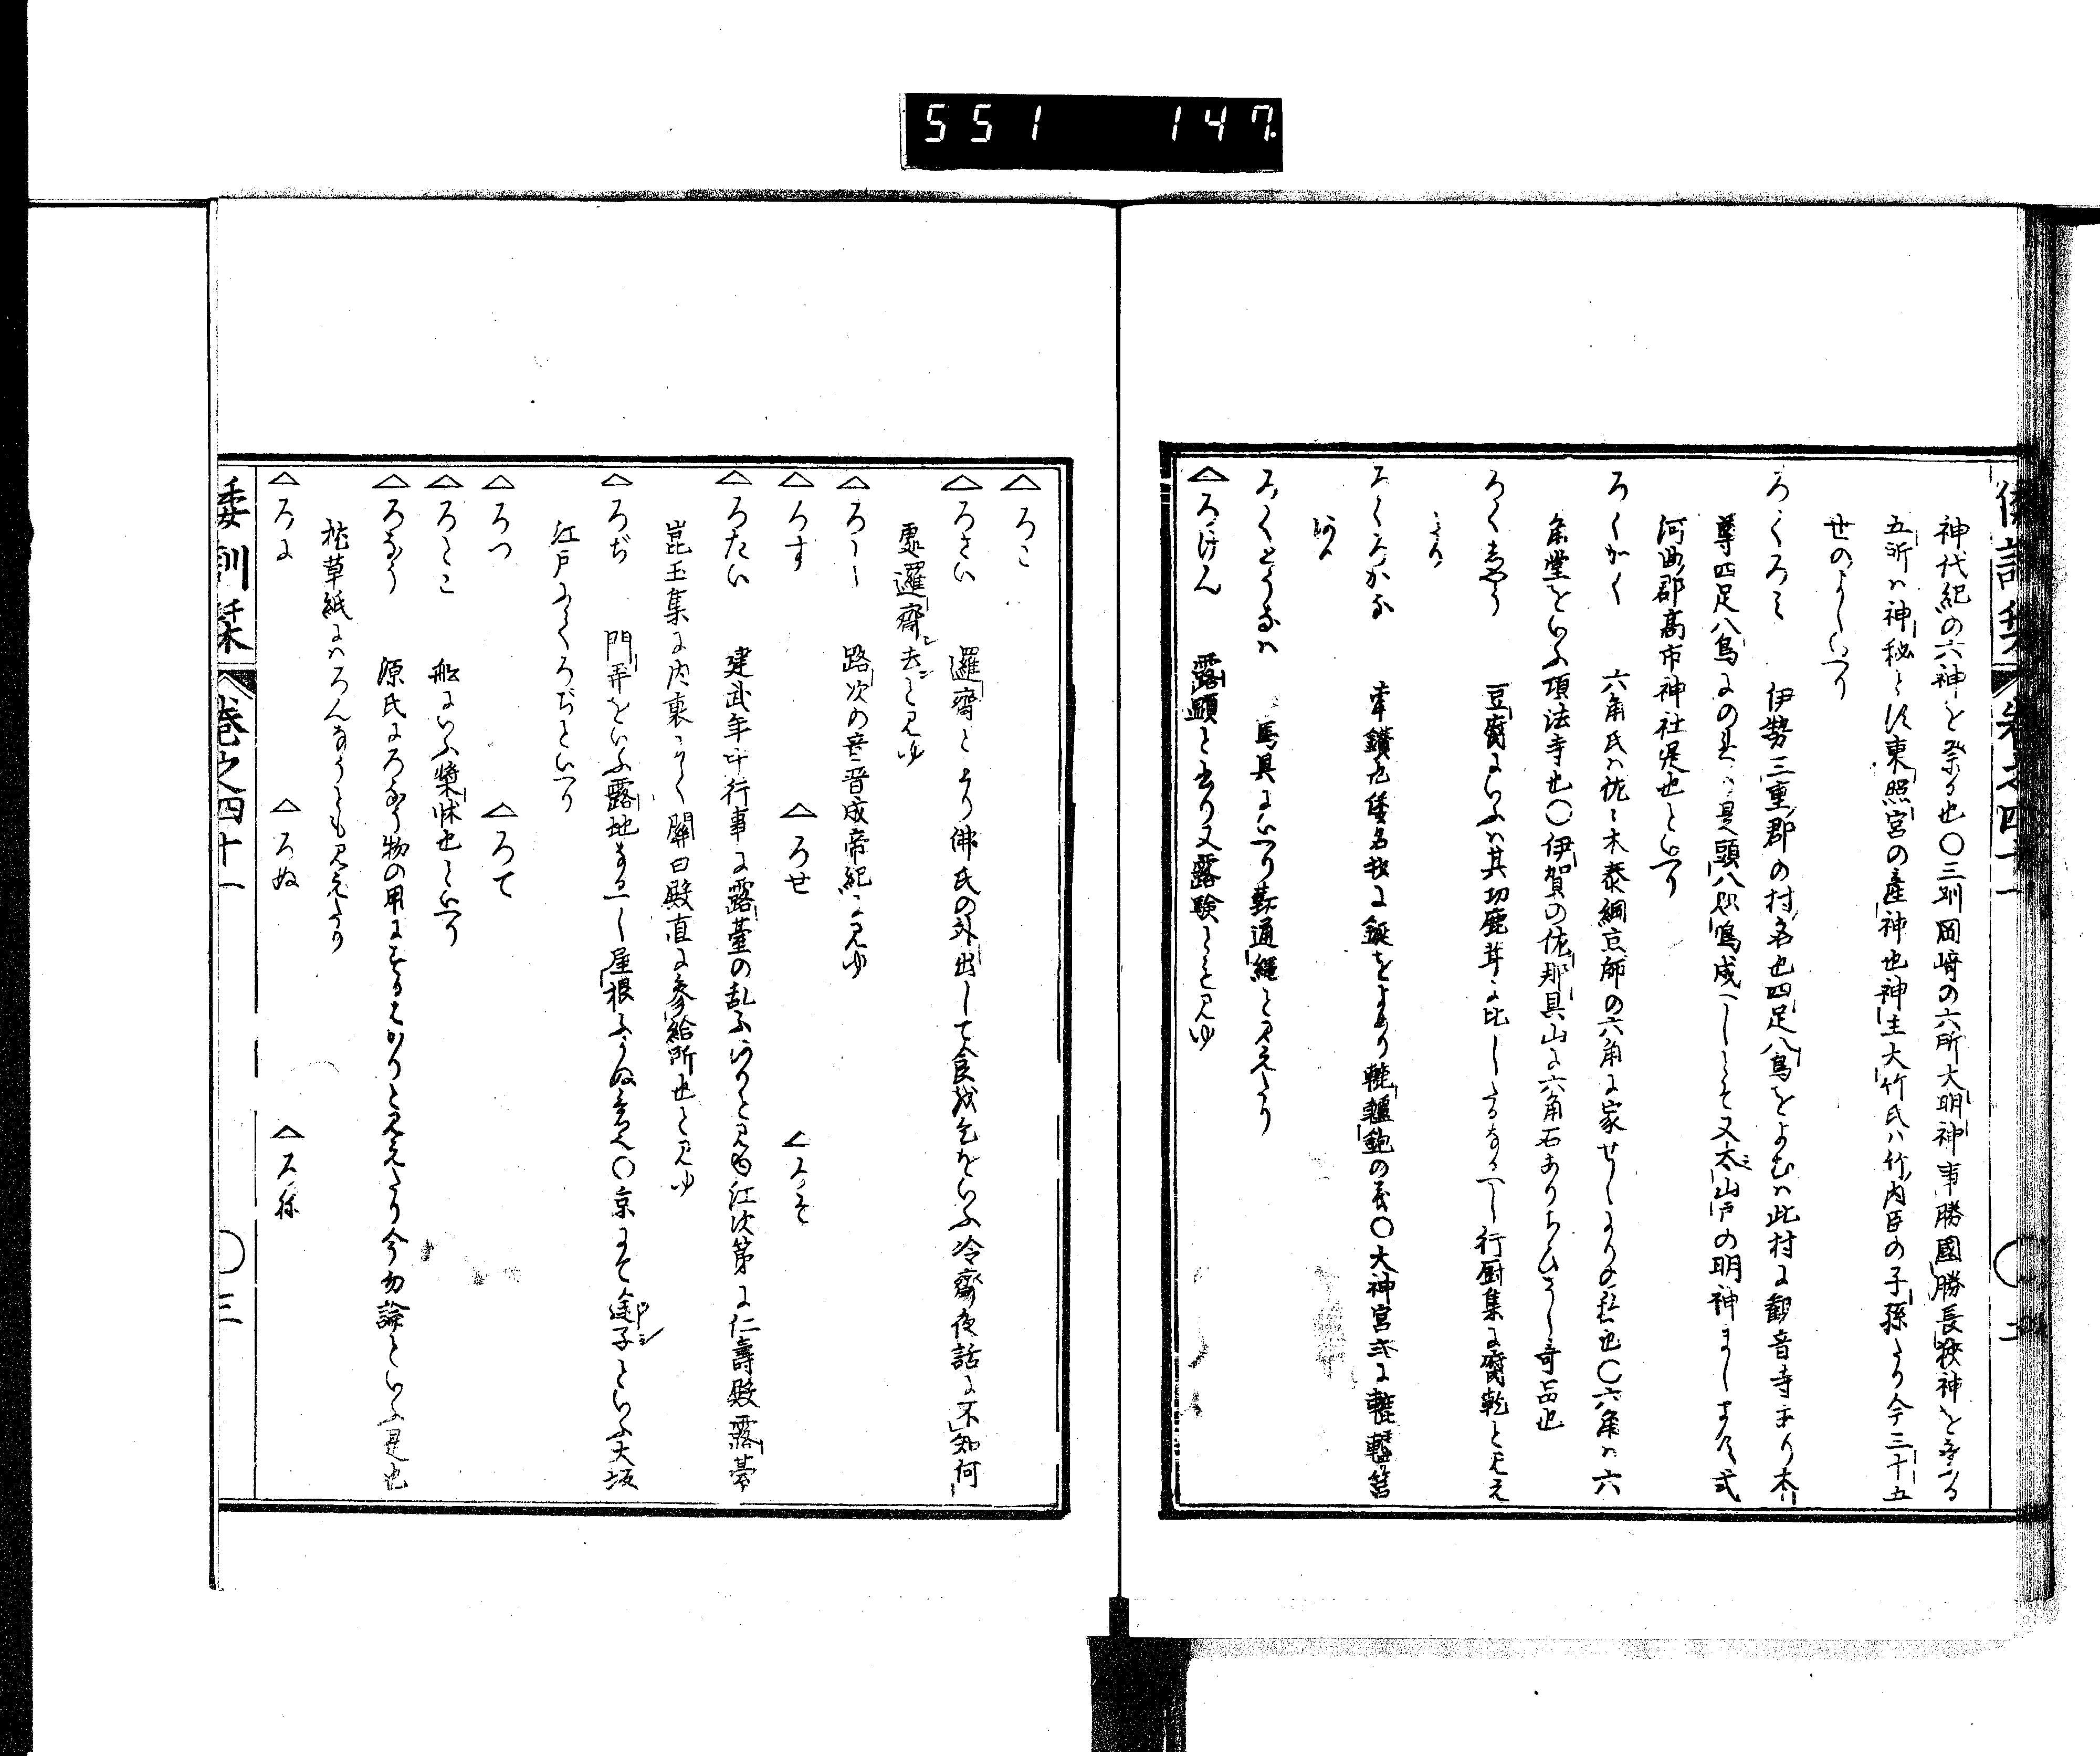 551 147
倭訓栞 卷之四十一 二
神代紀の六神を祭る也〇三州岡崎の六所大明神事勝國勝長狹神を
五所ハ神秘とす東照宮の産神也神主大竹氏ハ竹内臣の子孫たり今三十五
世のよしいへり
ろくろミ 伊勢三重郡の村名也四足八鳥をよむハ此村に觀音寺あり本
尊四足八鳥にのるハ是頭八咫烏成へしとそ又太山戸の明神ましますハ式
河曲郡高市神社是也といへり
ろくかく 六角氏ハ佐々木泰綱京師の六角に家せしよりの私也〇六角ハ六
角堂をいふ頂法寺也〇伊賀の佐那具山に六角石ありちひさし奇品也
ろくしやう 豆腐にいふハ其功鹿茸に比したるなるへし行厨集に腐乾と見え
たり
ろくろかな 車鑽也倭名抄に鋋をよめり轆轤鉋の義〇大神宮式に轆轤筥
あり
ろくとうなハ 馬具にいへり靮通繩と見えたり
△ろけん 露顯と書り又露験とも見ゆ
△ろこ
△ろさい 邏齋とより佛氏の外出して食救乞をいふ冷齋夜話に不知何
處邏齋シ去シと見ゆ
△ろし 路次の音晋成帝紀に見ゆ
△ろす △ろせ △ろそ
△ろたい 建武年中行事に露臺の乱ふいりと見ゆ江次第に仁壽殿露臺
崑玉集に内裏にて關白殿直に参給所也と見ゆ
△ろぢ 門弄をいふ露地なるへし屋根ふかぬ意也〇京にて途子ヅシといふ大坂
江戸にてろぢといへり
△ろつ △ろて
△ろとこ 船にいふ槳床也といへり
△ろなう 源氏にろなう物の用にするはかりと見えたり今勿論といふ是也
枕草紙にハろんなうとも見えたり
△ろに △ろぬ △ろね
倭訓栞 卷之四十一 〇三